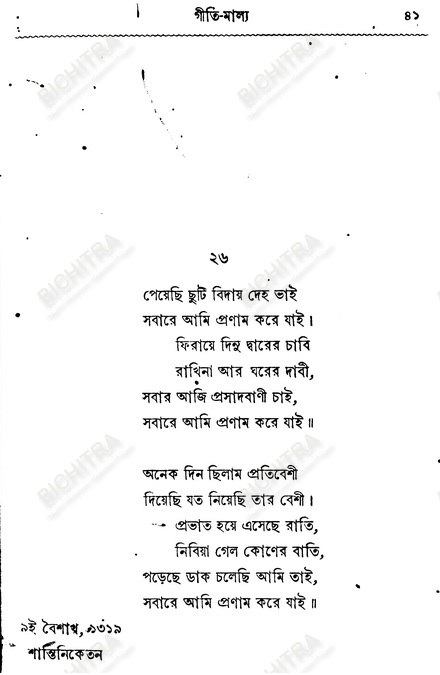 গীতি-মাল্য ৪১
২৬
পেয়েছি ছুটি বিদায় দেহ ভাই
সবারে আমি প্রণাম করে যাই।
ফিরায়ে দিনু দ্বারের চাবি
রাখিনা আর ঘরের দাবী,
সবার আজি প্রসাদবাণী চাই,
সবারে আমি প্রণাম করে যাই॥
অনেক দিন ছিলাম প্রতিবেশী
দিয়েছি যত নিয়েছি তার বেশী।
প্রভাত হয়ে এসেছে রাতি,
নিবিয়া গেল কোণের বাতি,
পড়েছে ডাক চলেছি আমি তাই,
সবারে আমি প্রণাম করে যাই॥
৯ই বৈশাখ, ১৩১৯
শান্তিনিকেতন
BICHITRA
BICHITRA
BICHITRA
BICHITRA
BICHITRA
BICHITRA
BICHITRA
BICHITRA